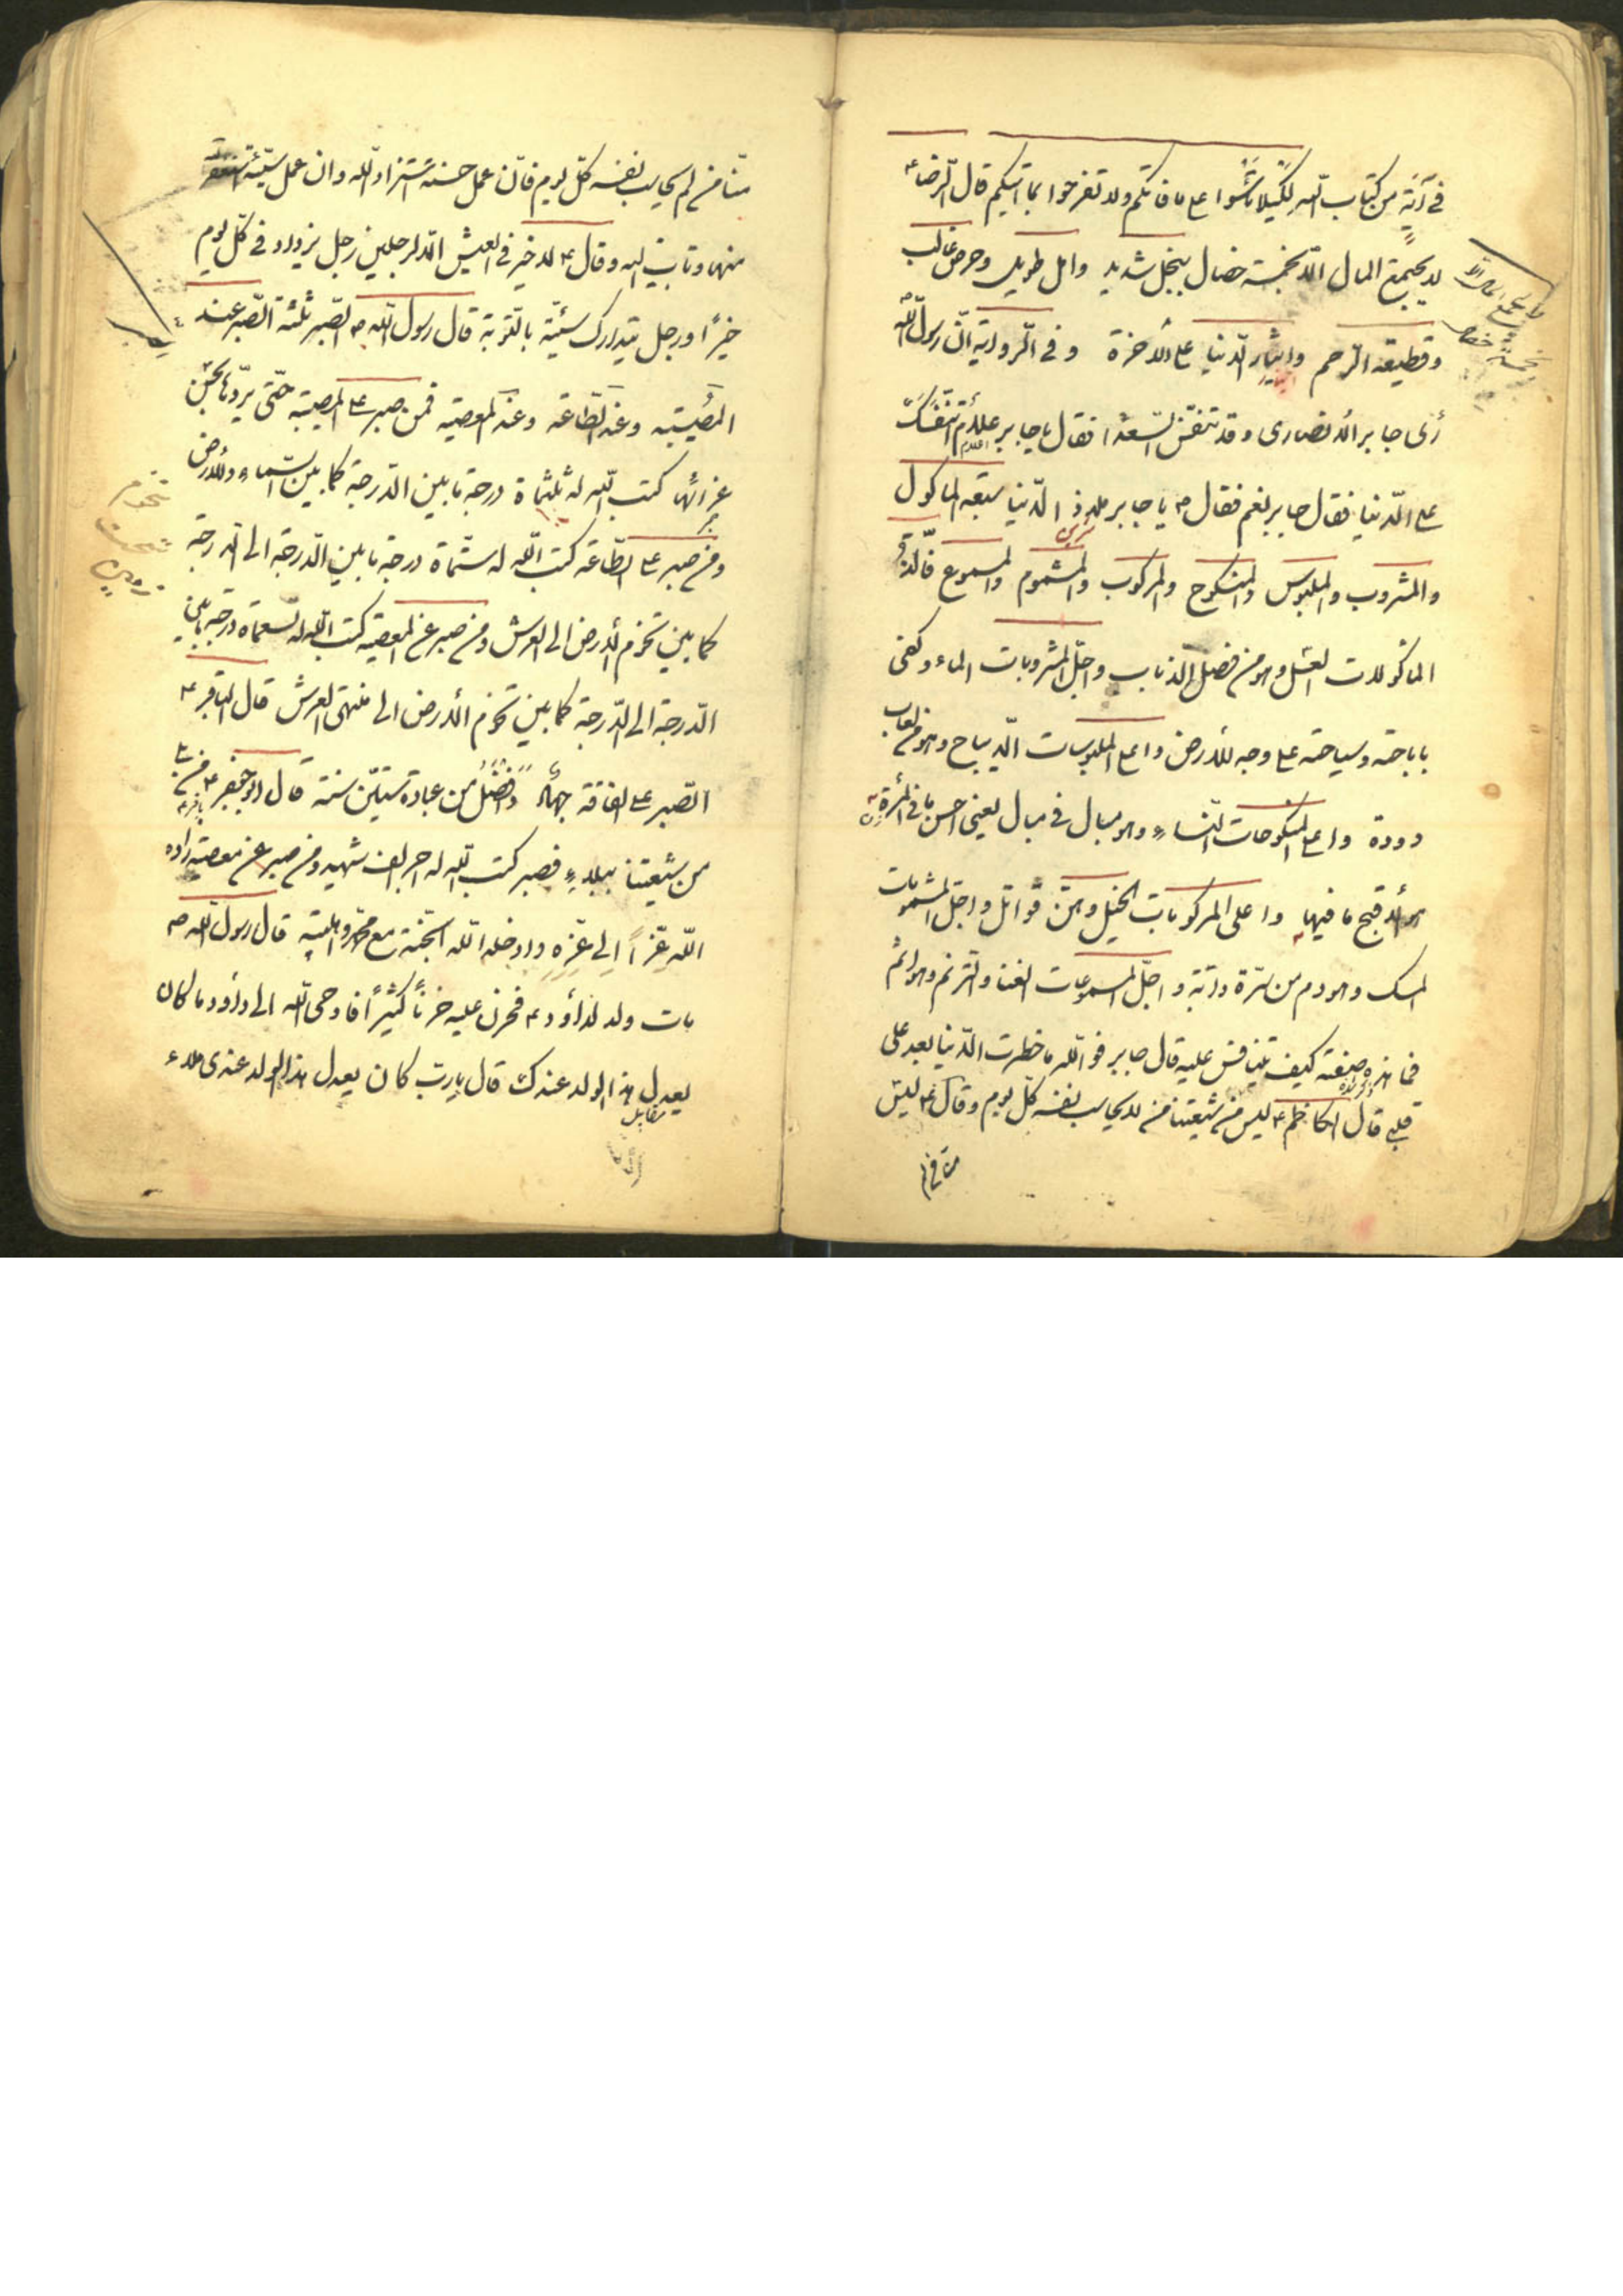 في آية من كتاب الله لكيلا تأسوا على ما فاتكم ولا تفرحوا بما آتيكم قال الرضا ع
لا يجتمع المال الا بخمسة خصال ببخل شديد وامل طويل وحرص غالب
وقطيعة الرحم وايثار الدنيا على الأخرة وفي الرواية انّ رسول الله
رأى جابر الانصاري وقد تنفّس الصّعدا فقال يا جابر علام تنفّسك
على الدنيا فقال جابر نعم فقال ص يا جابر ملاذ الدنيا سبعة المأكول
والمشروب والملبوس والمنكوح والمركوب والمشموم والمسموع فألذّ
المأكولات العسل وهو من فضل الذباب واجلّ المشروبات الماء وكفى
باباحته وسياحته على وجه الأرض واعلى الملبوسات الديباج وهو من لعاب
دودة واعلى المنكوحات النساء وهو مبال في مبال يعني احسن ما في المرأة
هو أقبح ما فيها واعلى المركوبات الخيل وهن قواتل واجلّ المشمومات
المسك وهو دم من سرّة دابّة واجلّ المسموعات الغنا والترنم وهو اثم
فما هذه صفته كيف يتنافس عليه قال جابر فوالله ما خطرت الدّنيا بعد على
قلبي قال الكاظم ع ليس من شيعتنا من لا يحاسب نفسه كلّ يوم وقال ع ليس
منّا من لم يحاسب نفسه كلّ يوم فان عمل حسنة استزاد الله وان عمل سيّئة استغفر
منها وتاب اليه وقال ع لا خير في العيش الّا لرجلين رجل يزداد في كلّ يوم
خيرًا ورجل يتدارك سيئته بالتّوبة قال رسول الله ص الصّبر ثلثة الصّبر عند
المصيبة وعند الطّاعة وعند المعصية فمن صبر على المصيبة حتّى يردّها بحسن
عزائها كتب الله له ثلثمأة درجة ما بين الدّرجة كما بين السّماء والأرض
ومن صبر على الطّاعة كتب الله له ستّمأة درجة ما بين الدّرجة الى الدرجة
كما بين تخوم الأرض الى العرش ومن صبر عن المعصية كتب الله له تسعمأة درجة ما بين
الدّرجة الى الدّرجة كما بين تخوم الأرض الى منتهى العرش قال الباقر ع
الصّبر على الفاقة جهاد وافضل من عبادة ستّين سنة قال ابو جعفر ع من
من شيعتنا ببلاء فصبر كتب الله له اجر الف شهيد ومن صبر عن معصية زاده
الله عزّاً الى عزّه وادخله الله الجنّة مع محمد واهلبيته قال رسول الله ص
مات ولد لداود ع فحزن عليه حزناً كثيرًا فاوحى الله الى داود ما كان
يعدل هذا الولد عندك قال يا ربّ كان يعدل هذا الولد عندي ملاء